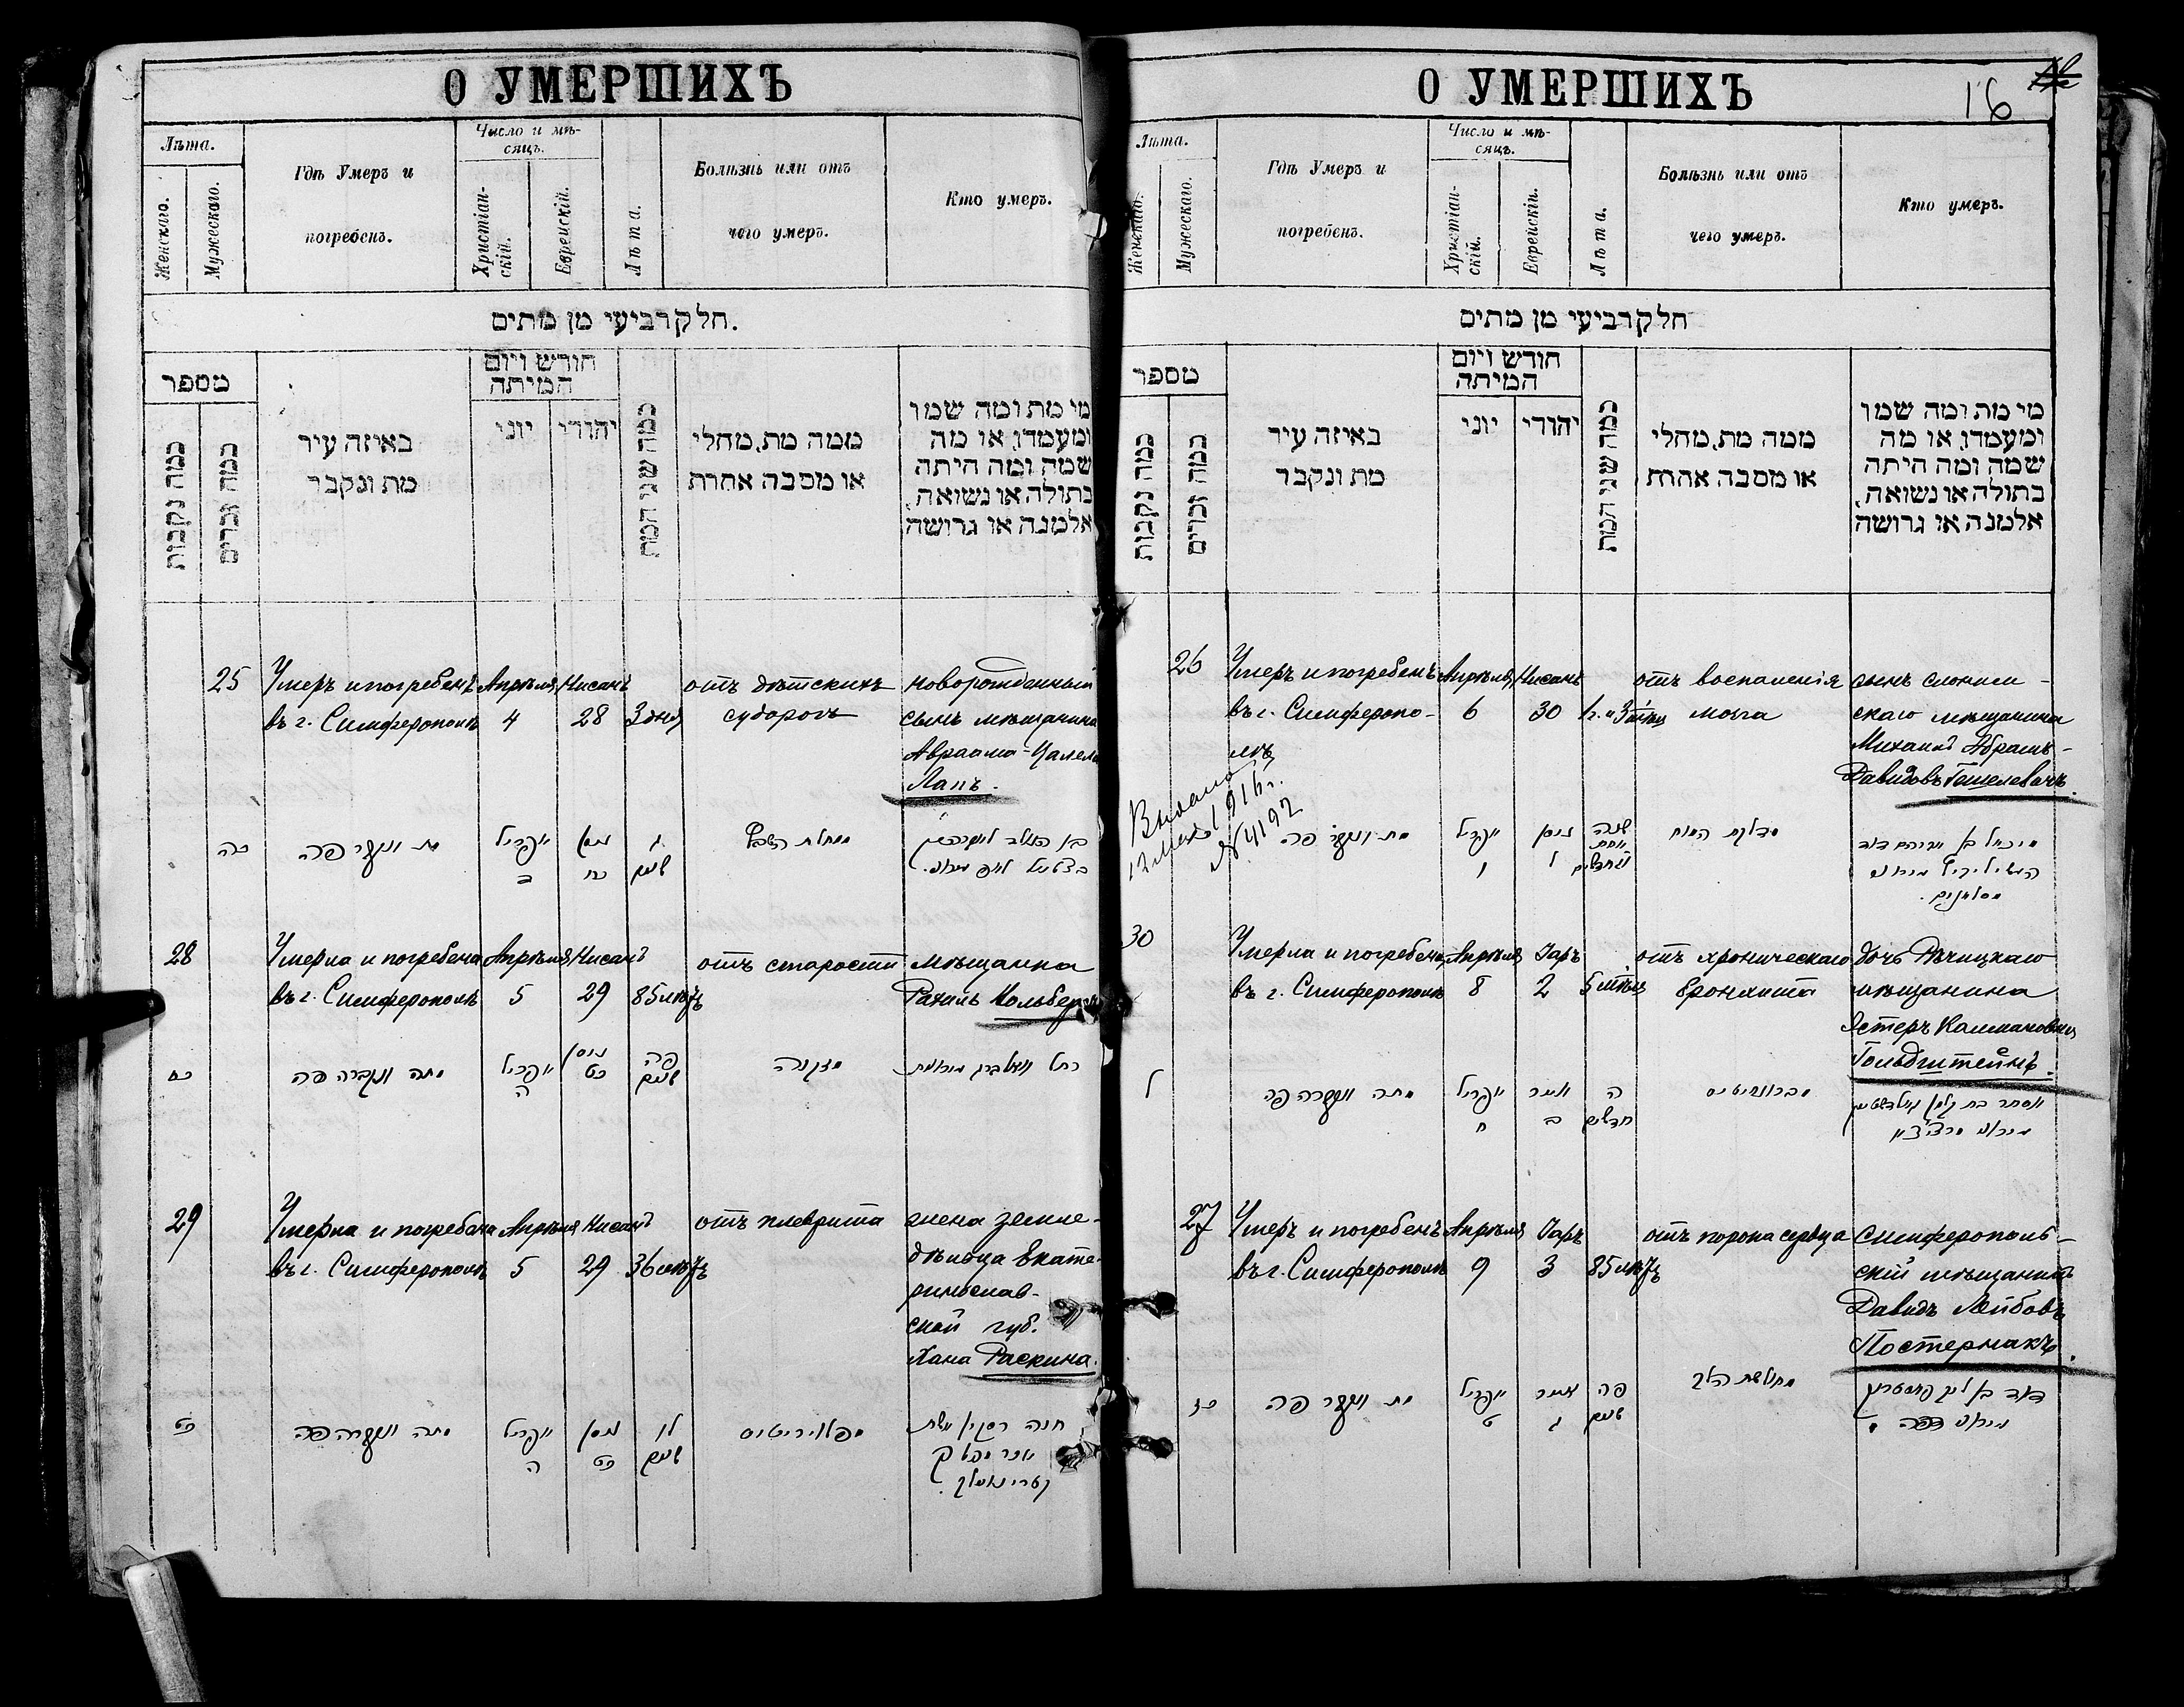 О УМЕРШИХЪ
Лѣта.
Женскаго.
Мужескаго.
Гдѣ Умеръ и
погребенъ.
Число и мѣ-
сяцъ.
Христіан-
скій.
Еврейскій.
Лѣта.
Болѣзнь или отъ
чего умеръ.
Кто умеръ.
חלק רביעי מן מתים.
מספר
כמה נקבות
כמה זכרים
באיזה עיר
מת ונקבר
חודש ויום
המיתה
יוני
יהודי
כמה שני המת
ממה מת, מחלי
או מסבה אחרת
מי מת ומה שמו
ומעמדו, או מה
שמה ומה היתה
בתולה או נשואה,
אלמנה או גרושה
25
Умеръ и погребенъ
въ г. Симферополѣ
Апрѣля
4
Нисанъ
28
3 дня
отъ дѣтскихъ
судорогъ
новорожденный
сынъ мѣщанина
Авраама-Цалела
Лапъ.
כה
מת ונקבר פה
אפריל
ניסן
כח
ג
ימים
28
Умерла и погребена
въ г. Симферополѣ
Апрѣля
5
Нисанъ
29
85 лѣтъ
отъ старости
мѣщанка
Рахиль Кольбергъ
כח
מתה ונקברה פה
אפריל
ה
ניסן
כט
פה
שנים
מזקנה
רחל
29
Умерла и погребена
въ г. Симферополѣ
Апрѣля
5
Нисанъ
29
36 лѣтъ
отъ плеврита
жена земле-
дѣльца Екате-
ринослав-
ской губ.
Хана Раскина.
כט
מתה ונקברה פה
אפריל
ה
ניסן
כט
לו
שנים
מפלויריטיס
חנה רסקין אשת
О УМЕРШИХЪ
16
Лѣта.
Женскаго.
Мужескаго.
Гдѣ Умеръ и
погребенъ.
Число и мѣ-
сяцъ.
Христіан-
скій.
Еврейскій.
Лѣта.
Болѣзнь или отъ
чего умеръ.
Кто умеръ.
חלק רביעי מן מתים
מספר
כמה נקבות
כמה זכרים
באיזה עיר
מת ונקבר
חודש ויום
המיתה
יוני
יהודי
כמה שני המת
ממה מת, מחלי
או מסבה אחרת
מי מת ומה שמו
ומעמדו, או מה
שמה ומה היתה
בתולה או נשואה,
אלמנה או גרושה
26
Умеръ и погребенъ
въ г. Симферопо-
лѣ
Апрѣля
6
Нисанъ
30
1 г. и 3 мѣс
отъ воспаленія
мозга
сынъ слоним-
скаго мѣщанина
Михаилъ Абрамъ-
Давидовъ Гешелевичъ.
1916 г.
№ 4192
מת ונקבר פה
אפריל
ו
ניסן
ל
מדלקת המוח
מיכאל בן אברהם דוד
30
Умерла и погребена
въ г. Симферополѣ
Апрѣля
8
Іаръ
2
5 мѣся
отъ хроническаго
бронхита
дочь Рѣчицкаго
мѣщанина
Эстеръ Калмановна
Гольдштейнъ.
ל
מתה ונקברה פה
אפריל
ח
אייר
ב
ה
חדשים
מברונכיטיס
אסתר בת קלמן גולדשטיין
27
Умеръ и погребенъ
въ г. Симферополѣ
Апрѣля
9
Іаръ
3
85 лѣтъ
отъ порока сердца
симферополь-
скій мѣщанинъ
Давидъ Лейбовъ
Постернакъ.
כז
מת ונקבר פה
אפריל
ט
אייר
ג
פה
שנים
מחולשת הלב
דוד בן ליב פוסטרנק